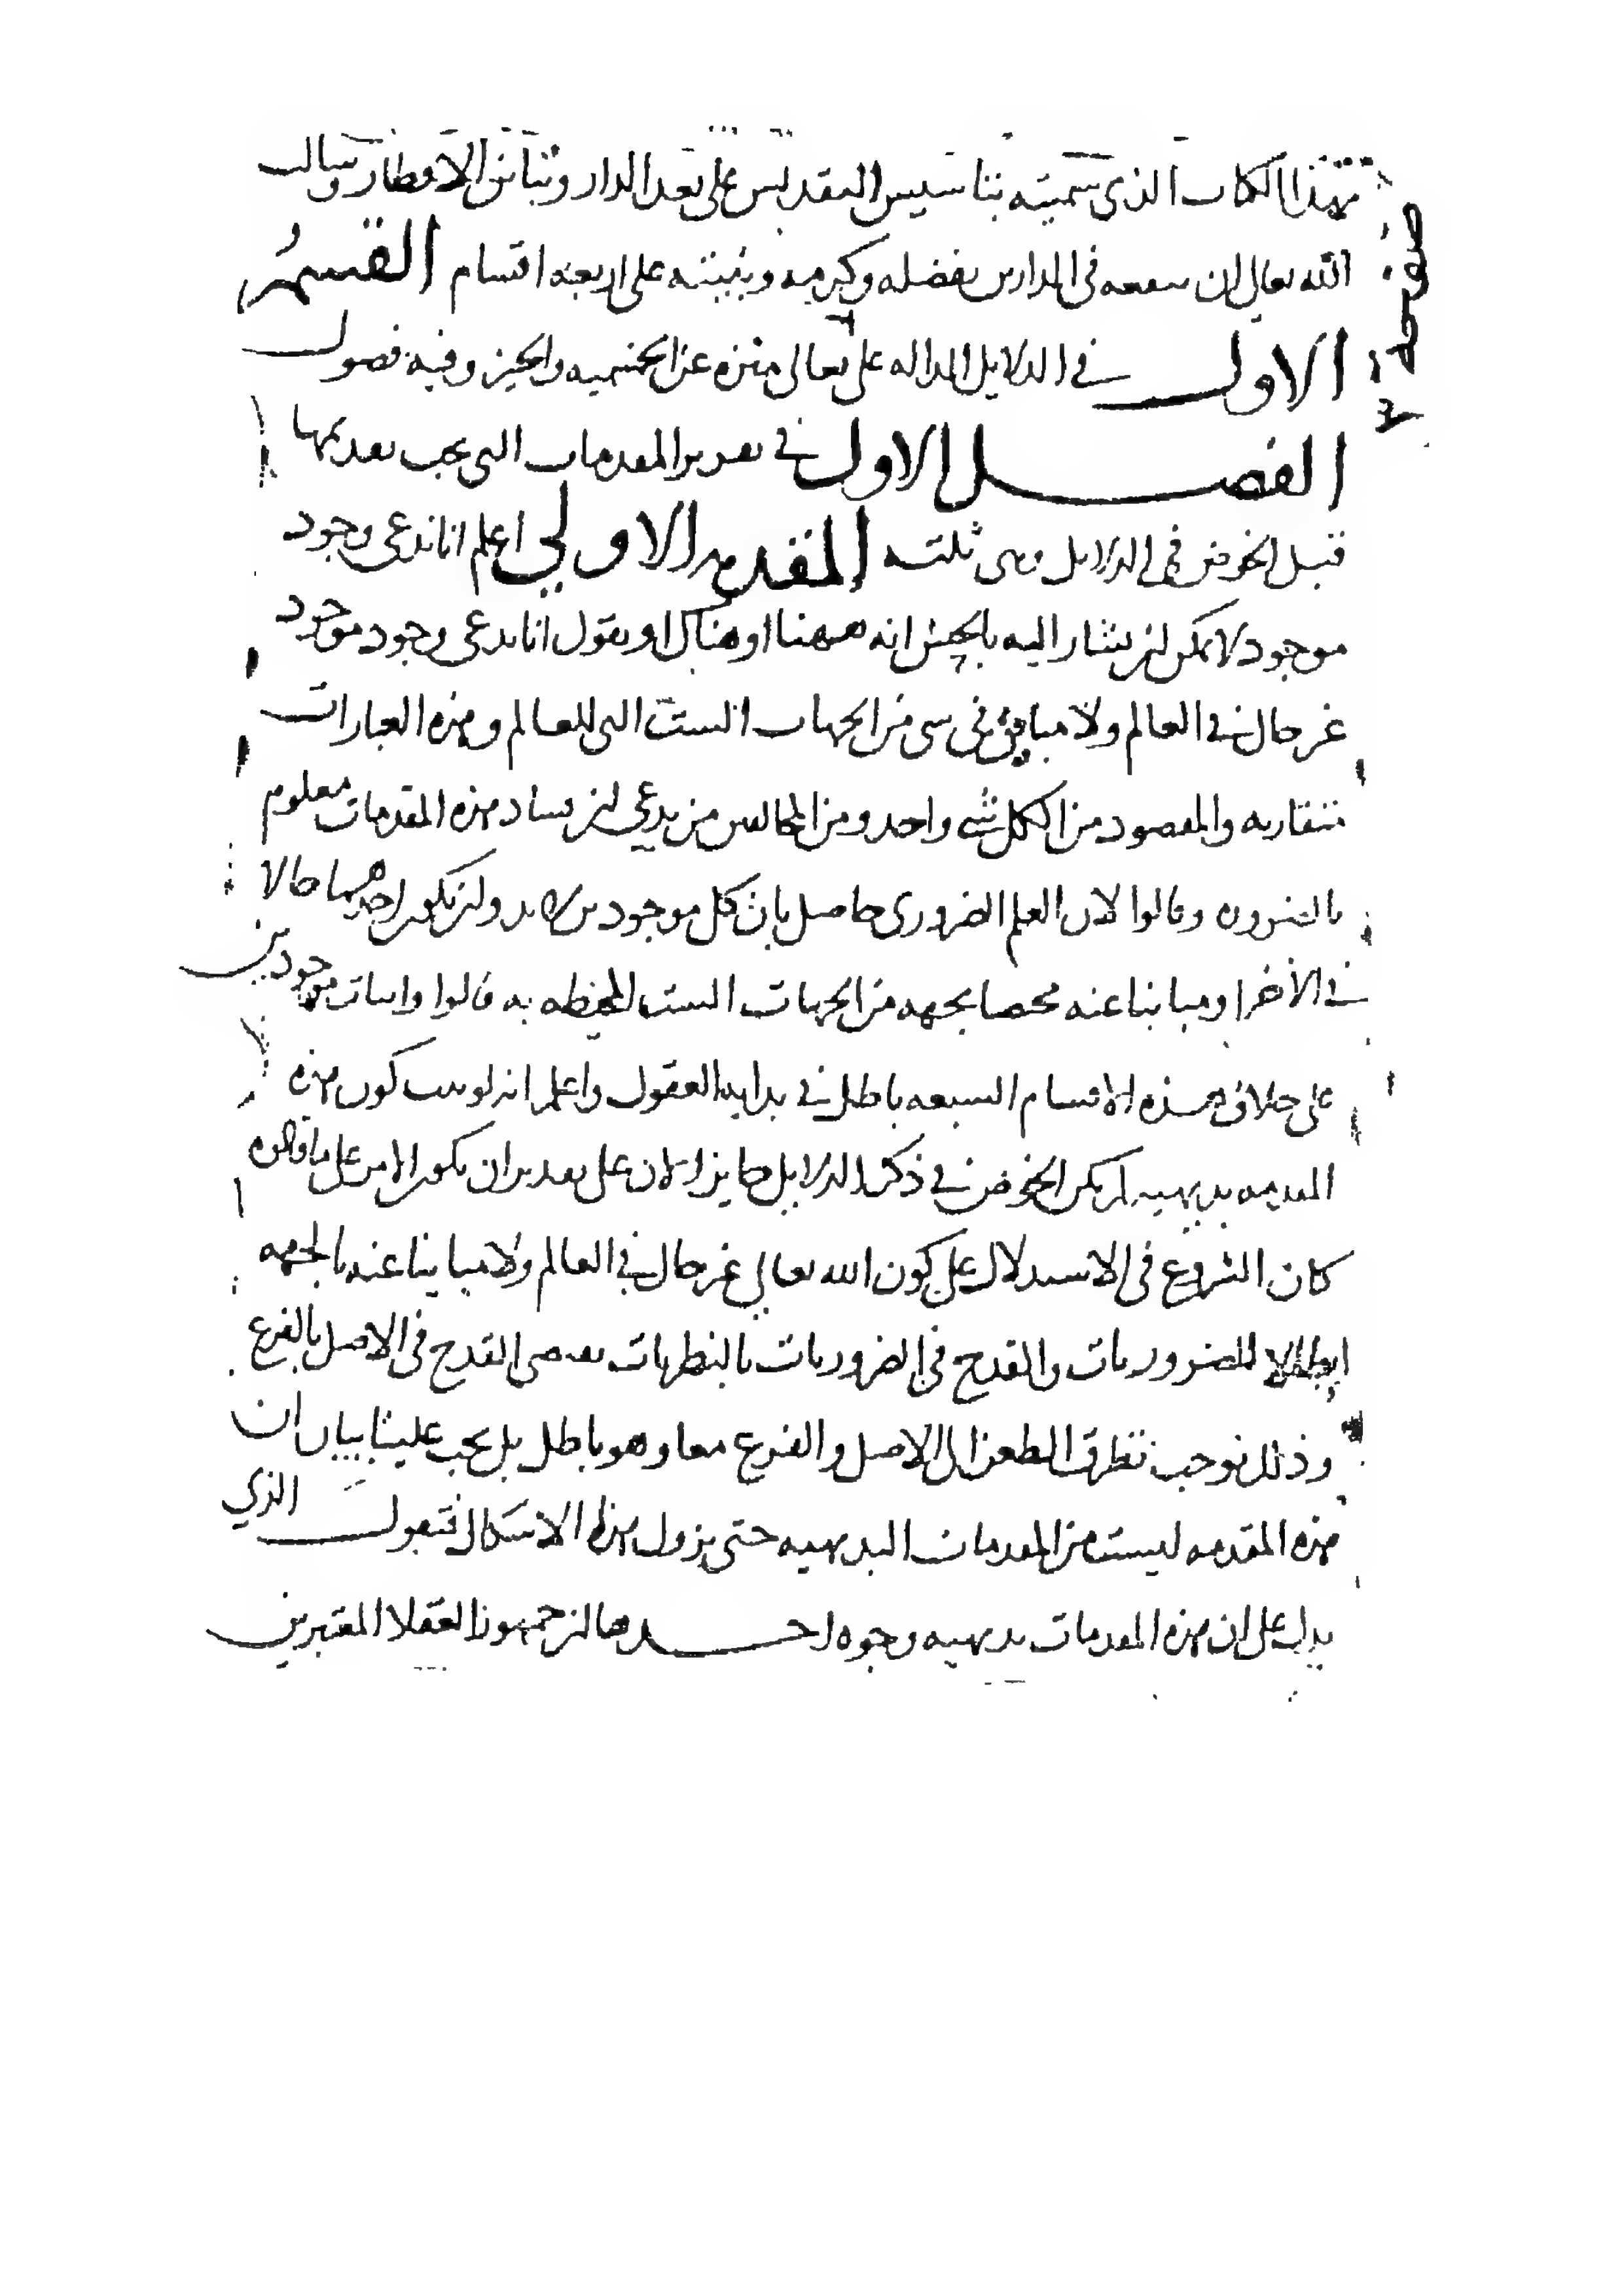 بهذا الكتاب الذى سميته بتاسيس التقديس على بعد الدار وتباين الاقطار وسالت
الله تعالى ان ينفعه فى الدارين بفضله وكرمه ورتبته على اربعة اقسام القسم
الاول فى الدلايل الداله على تعالى منزه عن الجسميه والحيز وفيه فصول
الفصل الاول فى تقرير المقدمات التى يجب تقديمها
قبل الخوض فى الدلايل وهى ثلثه المقدمه الاولى اعلم انا ندعى وجود
موجود لا يمكن ان يشار اليه بالحس انه ههنا او هناك او نقول انا ندعى وجود موجود
غير حال فى العالم ولا مباين فى شى من الجهات الست التى للعالم وهذه العبارات
متقاربه والمقصود من الكل شى واحد ومن المخالفين من يدعى ان فساد هذه المقدمات معلوم
بالضروره وقالوا لان العلم الضرورى حاصل بان كل موجودين لا بد وان يكون احدهما حالا
فى الاخر او مباينا عنه مختصا بجهه من الجهات الست المحيطه به قالوا واثبات موجودين
على خلاف هذه الاقسام السبعه باطل فى بدايه العقول واعلم انه لو ثبت كون هذه
المقدمه بديهيه لم يكن الخوض فى ذكر الدلايل جايزا لان على تقدير ان يكون الامر على ما قالوه
كان الشروع فى الاستدلال على كون الله تعالى غير حال فى العالم ولا مباينا عنه بالجهه
ابطالا للضروريات والقدح فى الضروريات بالنظريات يقتضى القدح فى الاصل بالفرع
وذلك يوجب تطرق الطعن الى الاصل والفرع معا وهو باطل بل يجب علينا بيان ان
هذه المقدمه ليست من المقدمات البديهيه حتى يزول هذا الاشكال فنقول الذي
يدل على ان هذه المقدمات بديهيه وجوه احدها ان جمهور العقلا المعتبرين
صفحة ٣